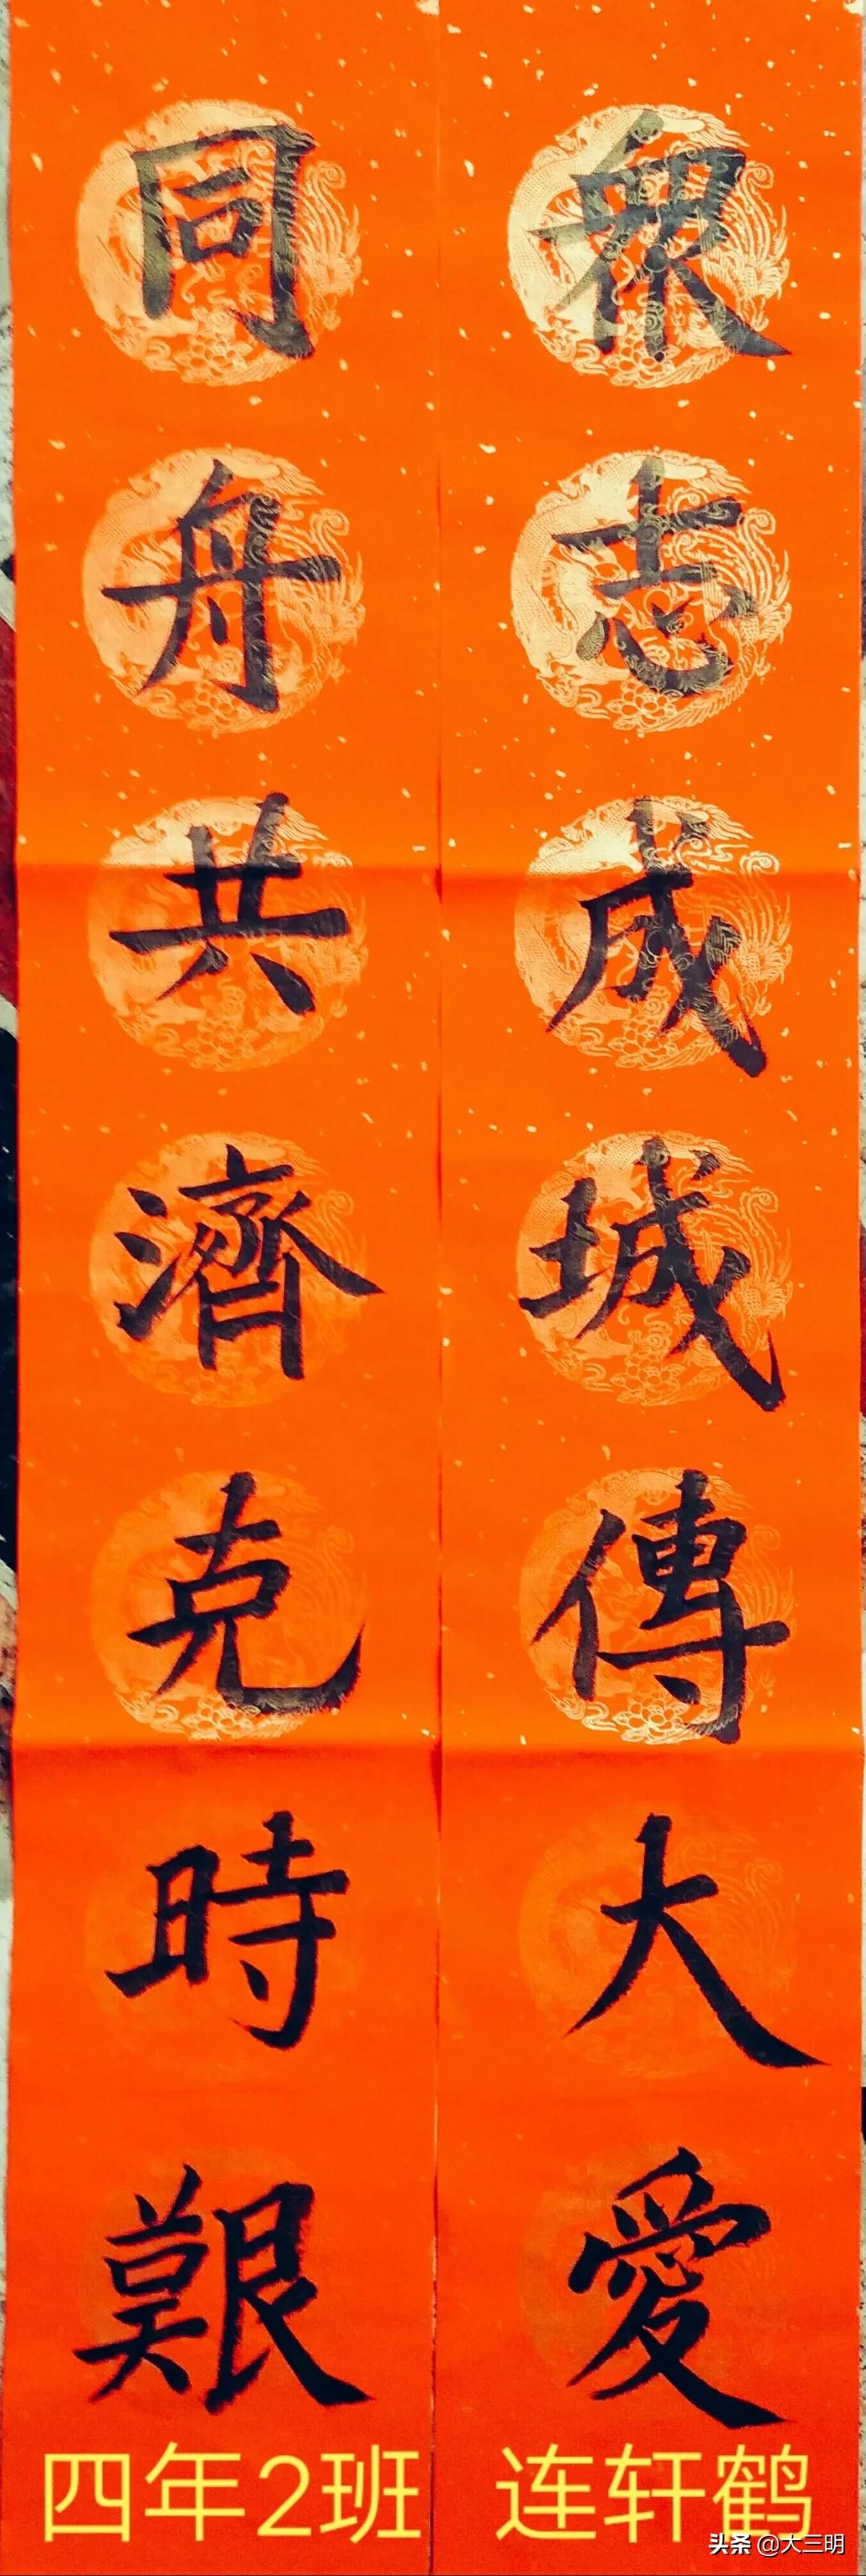 眾志成城傳大愛
同舟共濟克時艱
四年2班 连轩鹤
头条 @大三明